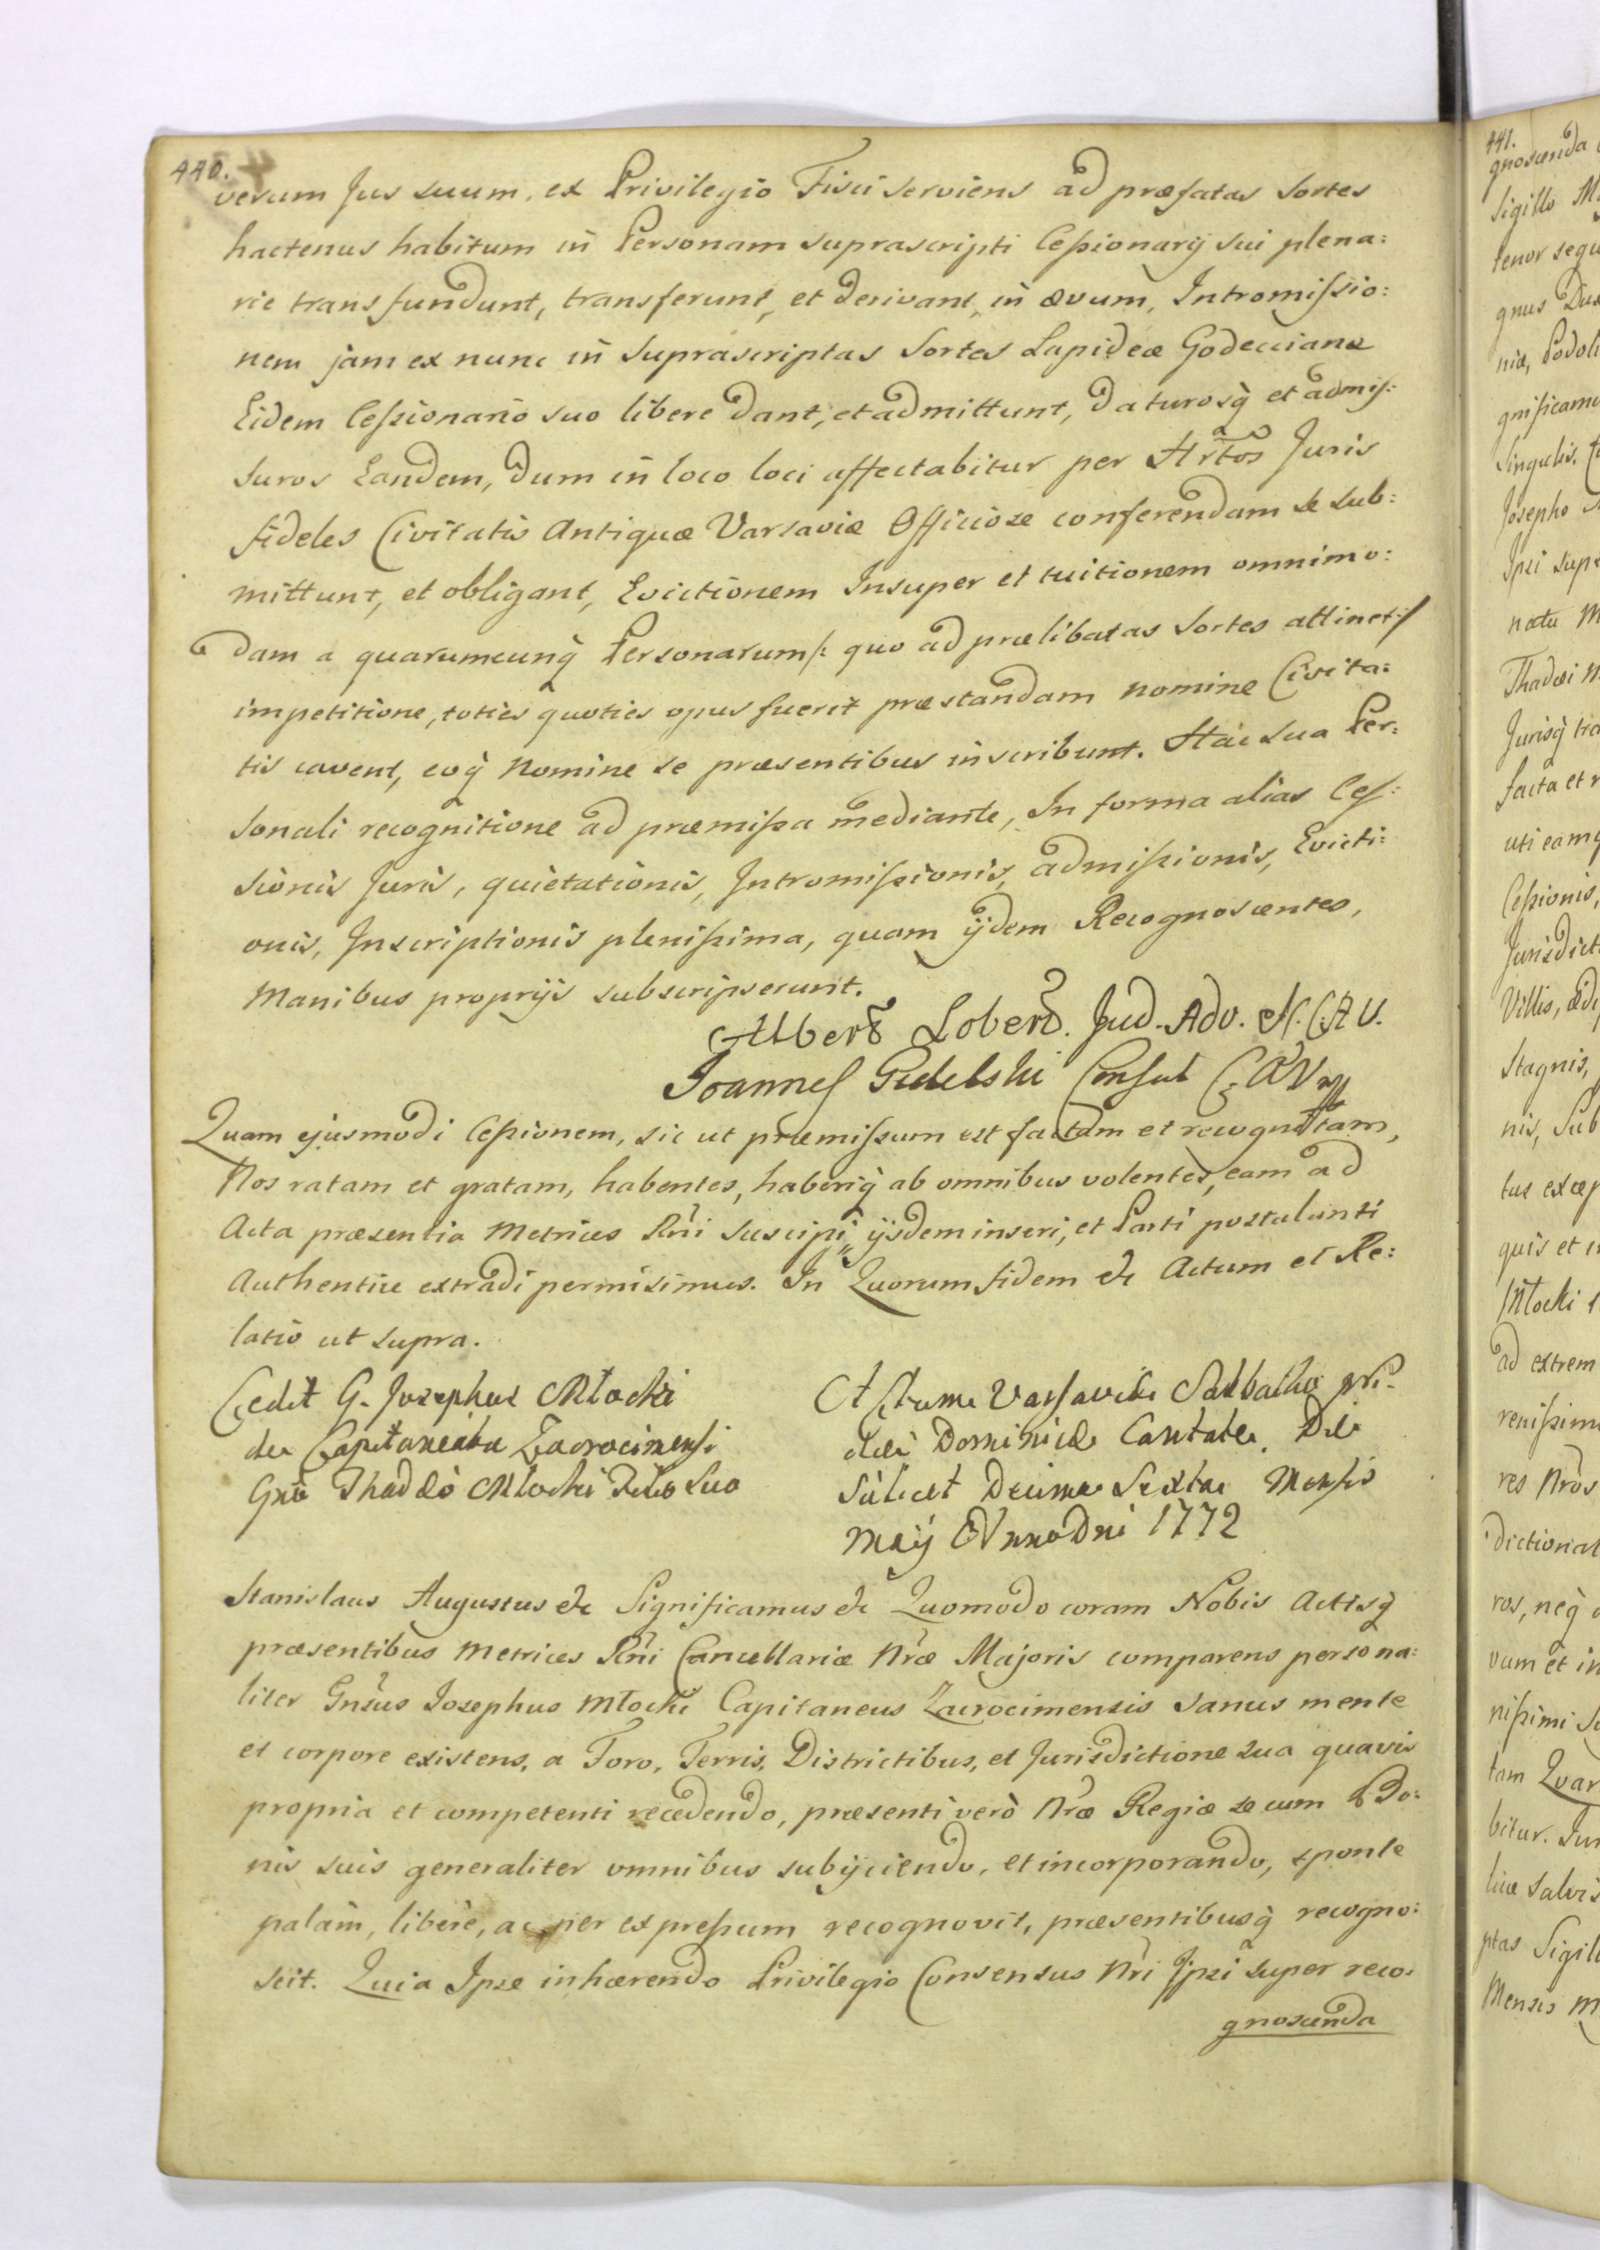 440.
verum Jus suum, ex Privilegio Fisci serviens ad præfatas Sortes
hactenus habitum in Personam suprascripti Cessionarij sui plena:
rie transfundunt, transferunt, et derivant, in ævum, Intromissio:
nem jam ex nunc in suprascriptas Sortes Lapideæ Godeccianæ
Eidem Cessionario suo libere dant, et admittunt, daturosq̀ et admis:
suros Eandem, dum in loco loci affectabitur per Juris
fideles Civitatis Antiquæ Varsaviæ Officiose conferendam se sub:
mittunt, et obligant, Evictionem Insuper et tuitionem omnimo:
dam a quarumcunq̀ Personarum /: quo ad prælibatas Sortes attinet :/
impetitione, toties quoties opus fuerit præstandam nomine Civita:
tis cavent, eoq̀ Nomine se præsentibus inscribunt. Hac sua Per:
sonali recognitione ad præmissa mediante, In forma alias Ces:
sionis Juris, quietationis, Intromissionis, admissionis, Evicti:
onis, Inscriptionis plenissima, quam ijdem Recognoscentes,
Manibus proprijs subscripserunt.
Albert Lobert. Jud. Adv. N. C. A V.
Joannes Gidelski Consul C. A V
Quam ejusmodi Cessionem, sic ut præmissum est factam et recognitam,
Nos ratam et gratam, habentes, haberiq̀ ab omnibus volentes, eam ad
Acta præsentia Metrices Rñi suscipi, ijsdem inseri, et Parti postulanti
Authentice extradi permisimus. In Quorum fidem &c Actum et Re:
latio ut supra.
Cedit G. Josephus Młocki
de Capitaneatu Zacrocimensi
Gnō Thaddeo Młocki Filio Suo
Actum Varsaviæ Sabbatho pri-
die Dominicæ Cantate. Die
Scilicet Decima Sexta Mensis
Maij Anno Dni 1772
Stanislaus Augustus &c Significamus &c Quomodo coram Nobis Actisq̀
præsentibus Metrices Rñi Cancellariæ Nræ Majoris comparens persona:
liter Gnsus Josephus Młocki Capitaneus Zacrocimensis sanus mente
et corpore existens, a Foro, Terris, Districtibus, et Jurisdictione sua quavis
propria et competenti recedendo, præsenti verò Nræ Regiæ se cum Bo:
nis suis generaliter omnibus subijciendo, et incorporando, sponte
palàm, liberè, ac per expressum recognovit, præsentibusq̀ recogno:
scit. Quia Ipse inhærendo Privilegio Consensus Nri Ipsi super reco:
gnoscenda
441.
gnoscenda
Sigillo
tenor
gnus
niæ,
gnificamu
Singulis.
Josepho
Ipsi
natu
Thadæi
Jurisq̀
facta et
uti
Cessionis,
Jurisdict
Villis,
Stagnis,
nis, Sub
tus
quis et
Młocki
ad extrem
renissim
res Nros
dictional
ros, neq̀
vum et in
nissimi
tam
bitur. Jur
salvis
ptas Sigill
Mensis